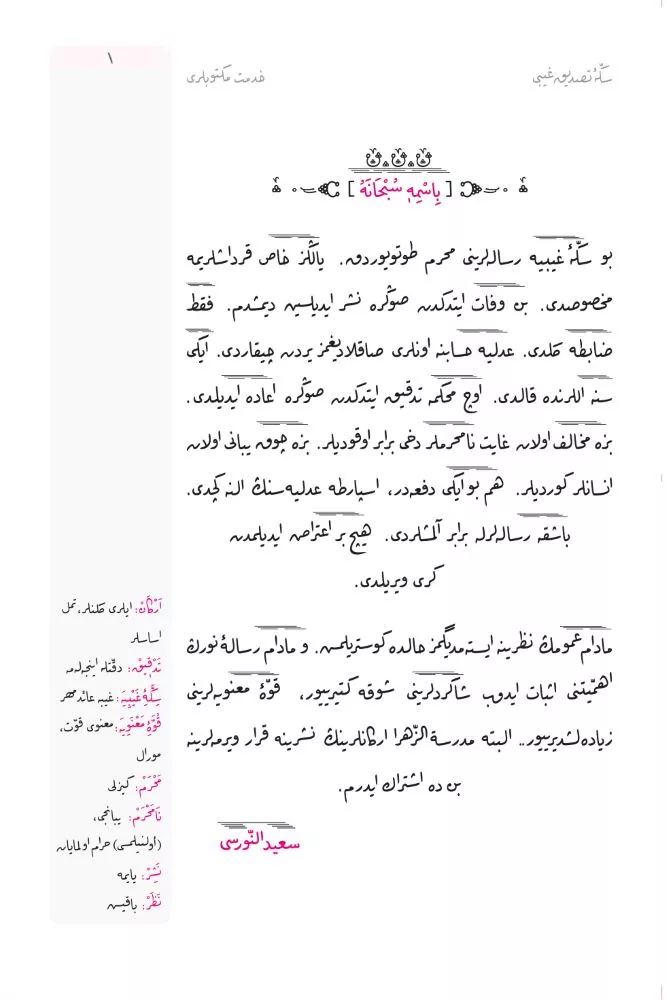 ١
سكّۀ تصديق غيبى
خدمت مكتوبلرى
[ بِاسْمِهٖ سُبْحَانَهُ ]
بو سكّۀ غيبيه رساله‌لرينى محرم طوتويوردق. يالڭز خاص قرداشلريمه
مخصوصدى. بن وفات ايتدكدن صوڭره نشر ايديلسين ديمشدم. فقط
ضابطه كلدى. عدليه حسابنه اونلرى صاقلاديغمز يردن چيقاردى. ايكى
سنه اللرنده قالدى. اوچ محكمه تدقيق ايتدكدن صوڭره اعاده ايديلدى.
بزه مخالف اولان غايت نامحرملر دخى برابر اوقوديلر. بزه چوق يبانى اولان
انسانلر كورديلر. هم بو ايكى دفعه‌در، اسپارطه عدليه‌سنڭ النه كچدى.
باشقه رساله‌لرله برابر آلمشلردى. هيچ بر اعتراض ايديلمدن
كرى ويريلدى.
مادام عمومڭ نظرينه ايسته‌مديگمز حالده كوستريلمس. و مادام رسالۀ نورڭ
اهمّيتنى اثبات ايدوب شاكردلرينى شوقه كتيرييور، قوّۀ معنويه‌لرينى
زياده‌لشديرييور.. البته مدرسة الزّهرا اركانلرينڭ نشرينه قرار ويرمه‌لرينه
بن ده اشتراك ايدرم.
سعيد النّورسى
اَرْكَانْ: ايلرى كلنلر، تمل
اساسلر
تَدْقِيقْ: دقّتله اينجه‌لمه
سِكَّۀِ غَيْبِيَه: غيبه عائد مهر
قُوَّۀِ مَعْنَوِيَه: معنوى قوّت،
مورال
مَحْرَمْ: كيزلى
نَامَحْرَمْ: يبانجى،
(اولنيلمسى) حرام اولمايان
نَشِرْ: يايمه
نَظَرْ: باقيش